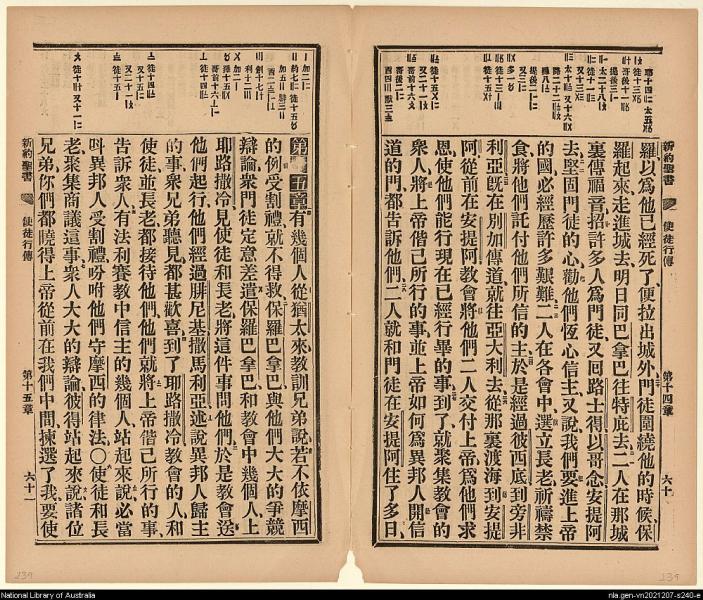 新約聖書
使徒行傳
第十四章
六十
羅以爲他已經死了、便拉出城外、門徒圍繞他的時候、保
羅起來走進城去、明日同巴拿巴往特庇去、二人在那城
裏傳福音、招許多人爲門徒、又回路士得以哥念安提阿
去、堅固門徒的心、勸他們恆心信主、又說我們要進上帝
的國、必經歷許多艱難、二人在各會中選立長老、祈禱禁
食、將他們託付他們所信的主、於是經過彼西底、到旁非
利亞、旣在別加傳道、就往亞大利去、從那裏渡海到安提
阿、從前在安提阿教會將他們二人交付上帝、爲他們求
恩、使他們能行現在已經行畢的事、到了就聚集教會的
衆人、將上帝偕己所行的事、並上帝如何爲異邦人開信
道的門、都告訴他們、二人就和門徒在安提阿住了多日、
第十五章 有幾個人從猶太來、教訓兄弟說、若不依摩西
的例受割禮、就不得救、保羅巴拿巴與他們大大的爭競
辯論、衆門徒定意差遣保羅巴拿巴和教會中幾個人、上
耶路撒冷見使徒和長老、將這件事問他們、於是教會送
他們起行、他們經過腓尼基撒馬利亞、述說異邦人歸主
的事、衆兄弟聽見都甚歡喜、到了耶路撒冷、教會的人和
使徒並長老、都接待他們、他們就將上帝偕己所行的事、
告訴衆人、有法利賽教中信主的幾個人、站起來說、必當
呌異邦人受割禮、吩咐他們守摩西的律法、〇使徒和長
老聚集商議這事、衆人大大的辯論、彼得站起來說、諸位
兄弟、你們都曉得上帝從前在我們中間揀選了我、要使
新約聖書
使徒行傳
第十五章
六十一
239
239
National Library of Australia
nla.gen-vn2021207-s240-e